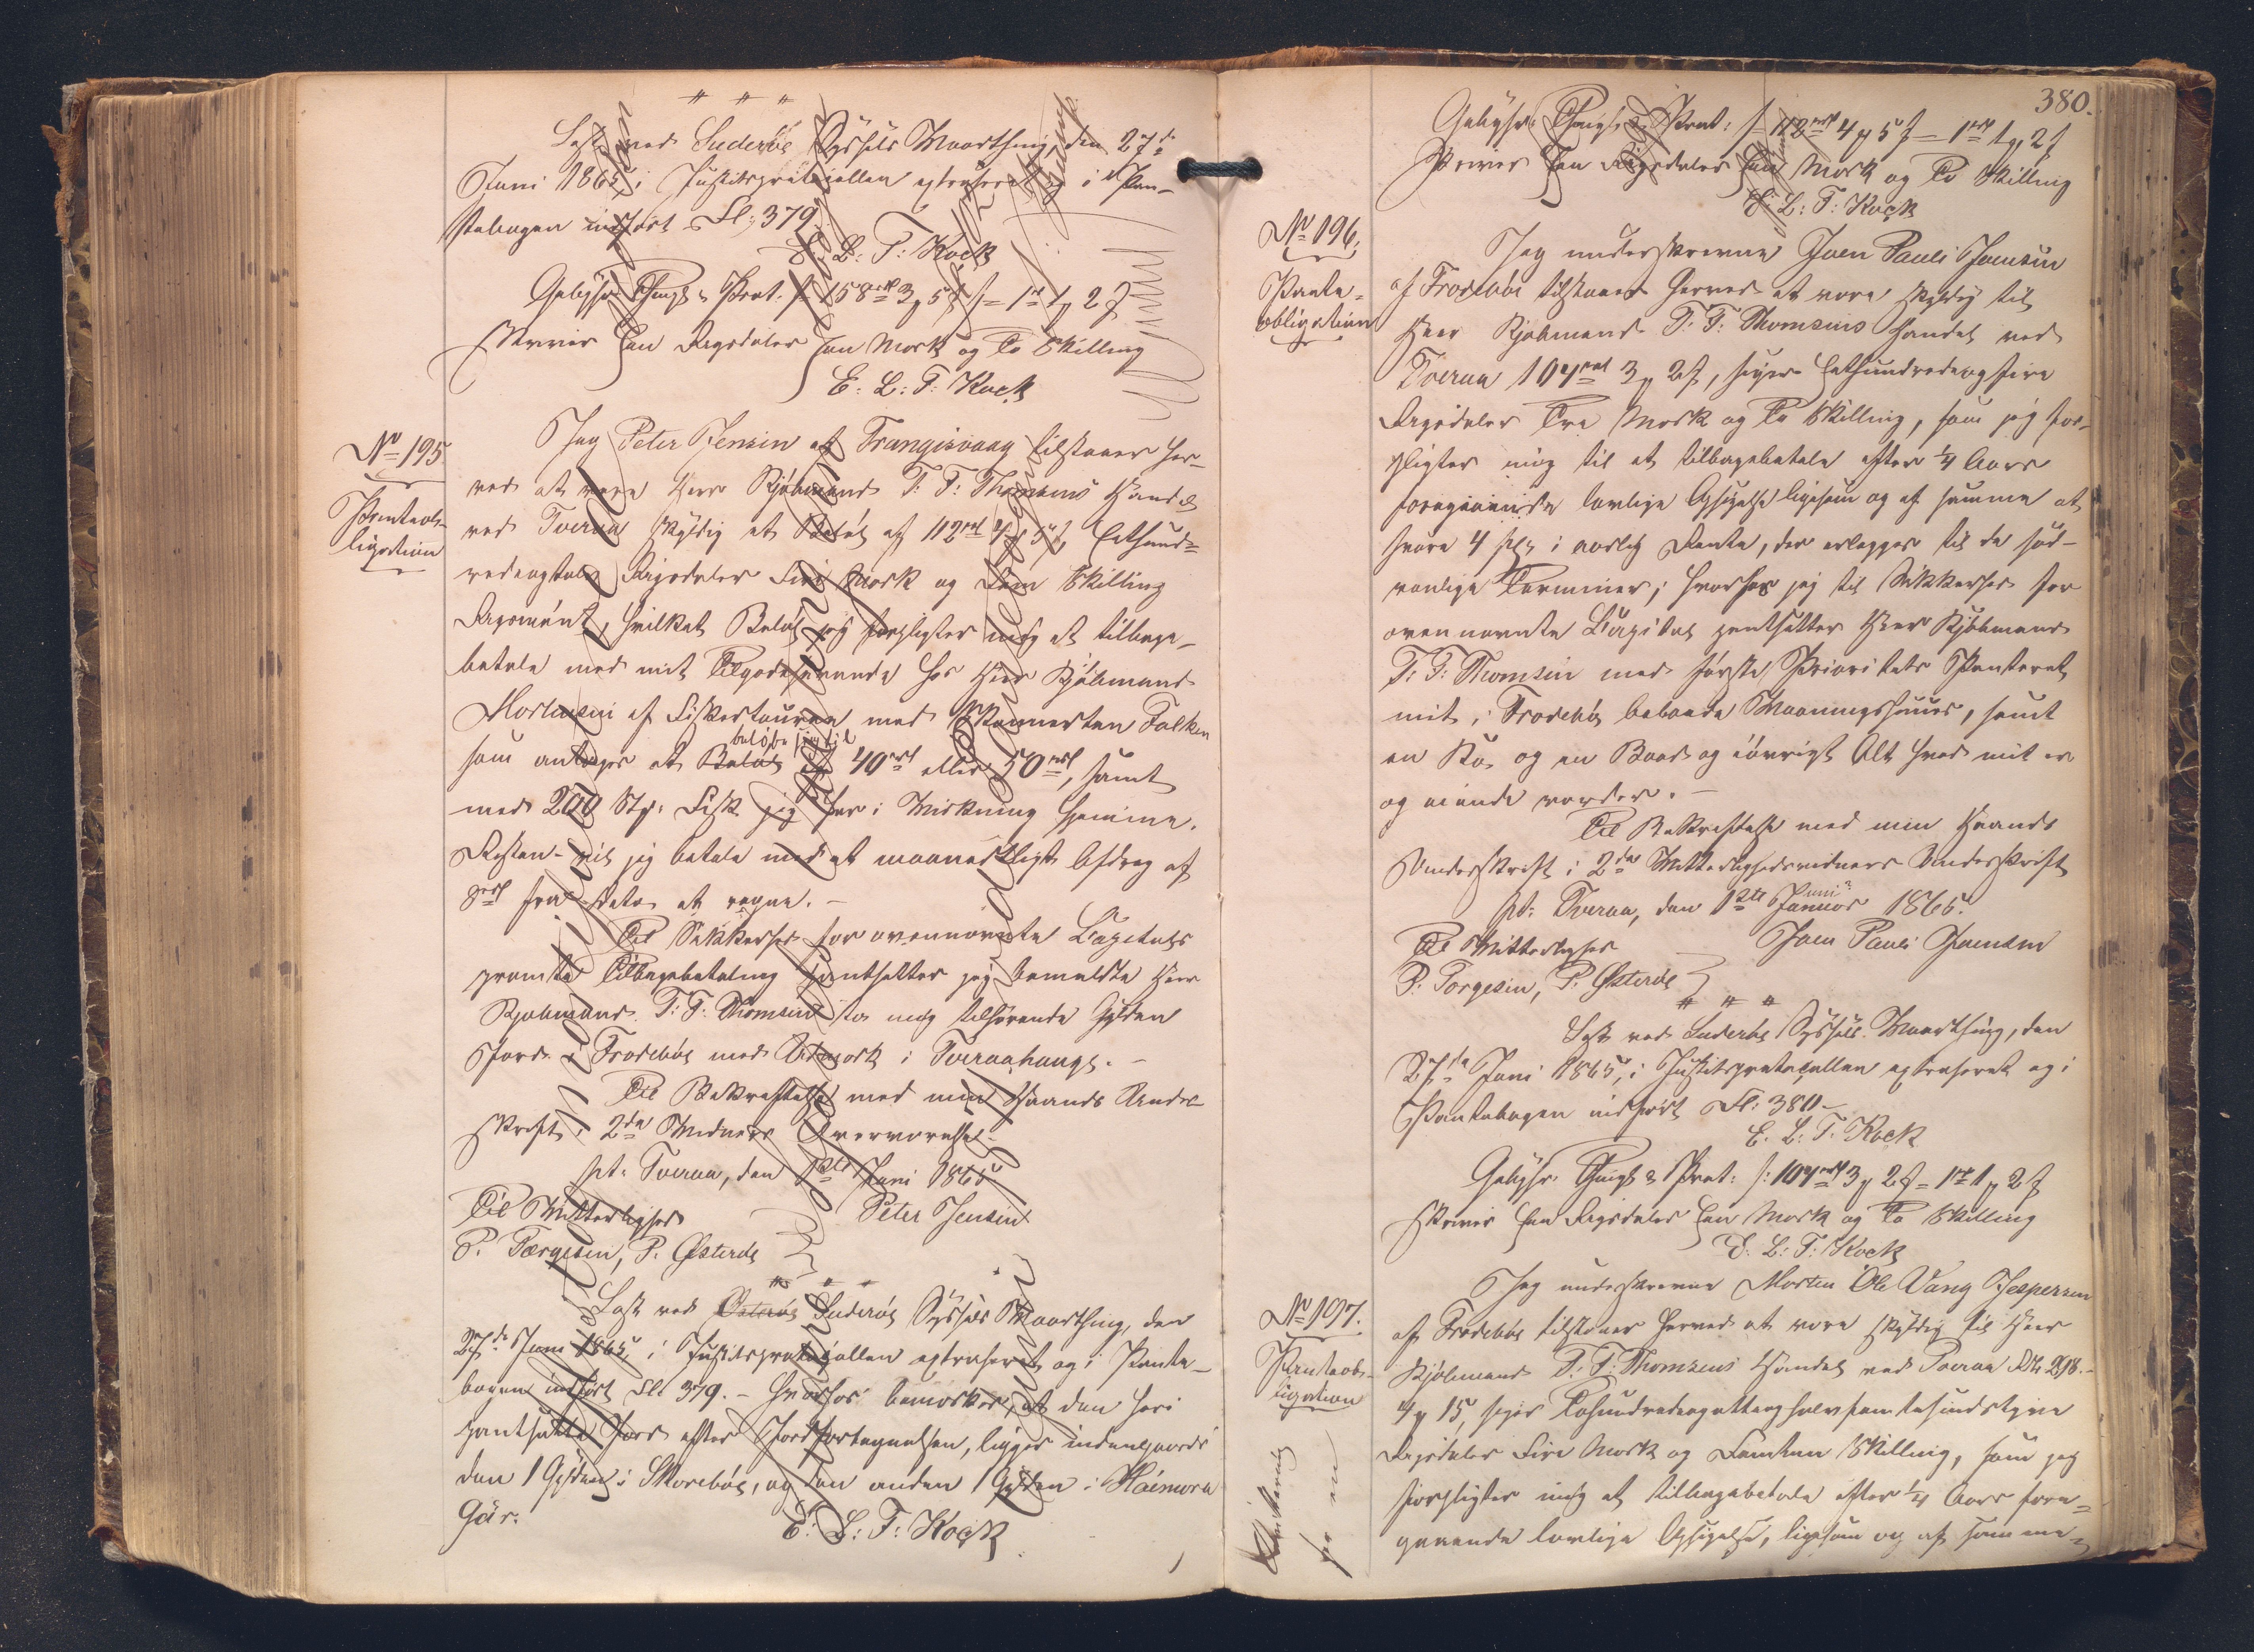 Læst ved Suderöe Syssels Vaarthing, den 27de
Juni 1865, i Justitsprotocollen extraheret og i Pan-
tebogen indført Fl: 379
E. L: T: Kock
Gebyhr Thingl & Prot: f 158rd 3 5 = 1rd 1 2
skriver Een Rigsdaler Een Mark og To Skilling
E. L: T: Kock
No 195
Panteob-
ligation
Jeg Peter Jensen af Trangisvaag tilstaaer her-
ved at være Herr Kjøbmand T. F: Thomsens Handel
ved Tveraa skyldig et Beløb af 112rd 4 5, Eethund-
redeogtolv Rigsdaler Fire Mark og Fem Skilling
Rigsmønt, hvilket Beløb jeg forpligter mig at tilbage-
betale med mit Tilgodehavende hos Herr Kjøbmand
Mortensen af Fisketouren med Skonnerten Falken
som antages at beløbe sig til 40rd eller 50rd, samt
med 200 Stk: Fisk jeg har i Virkning hjemme.
Resten vil jeg betale med et maanedtligt Afdrag af
8rd fra dato at regne. -
Til Sikkerhed for ovennævnte Capitals
promte Tilbagebetaling pantsætter jeg bemeldte Herr
Kjøbmand T: F: Thomsen to mig tilhørende Gylden
Jord i Frodebøe med Udmark i Tveraahauge. -
Til Bekræftelse med min Haands Under-
skrift i 2de Vidners Overværelse.
pt: Tveraa, den 1ste Juni 1865
Til Vitterlighed Peter Jensen
P. Torgesen, P. Østerøe
Læst ved Østerøe Suderöe Syssels Vaarthing, den
27de Juni 1865, i Justitsprotocollen extraheret og i Pante-
bogen indført Fl: 379. - Hvorhos bemærkes, at den heri
pantsatte Jord efter Jordfortegnelsen, ligger indengaards
den 1 Gylden i Skorebøe, og den anden 1 Gylden i Háimora
Gár.
E: L: T: Kock
380.
Gebyhr: Thingl & Prot: f 112rd 4 5 = 1rd 1 2
skriver Een Rigsdaler Een Mark og To Skilling
E. L: T: Kock
No 196,
Pante-
obligation
Jeg underskrevne Joen Pauli Joensen
af Frodebøe tilstaaer herved at være skyldig til
Herr Kjøbmand T: F: Thomsens Handel ved
Tveraa 104rd 3 2, siger Eethundredeogfire
Rigsdaler Tre Mark og To Skilling, som jeg for-
pligter mig til at tilbagebetale efter 1/4 Aars
foregaaende lovlige Opsigelse ligesom og af samme at
svare 4 pCt i aarlig Rente, der erlægges til de sæd-
vanlige Terminer; hvorhos jeg til Sikkerhed for
ovennævnte Capital pantsætter Herr Kjøbmand
T: F: Thomsen med første Prioritets Panteret
mit i Frodebøe beboede Vaaningshuus, samt
en Ko, og en Baad og iøvrigt Alt hvad mit er
og eiende vorder. -
Til Bekræftelse med min Haands
Underskrift i 2de Vitterlighedsvidners Underskrift
pt: Tveraa, den 1ste Juni 1865.
Til Vitterlighed Joen Pauli Joensen
P: Torgesen, P. Østerøe
Læst ved Suderöe Syssels Vaarthing, den
27de Juni 1865, i Justitsprotocollen extraheret og i
Pantebogen indført Fl: 380 -
E. L: T. Kock
Gebyhr. Thingl & Prot: f: 104rd 3 2 = 1rd 1 2
skriver Een Rigsdaler Een Mark og To Skilling
E: L: T: Kock
No 197.
Panteob-
ligation
Jeg underskrevne Morten Ole Vang Jespersen
af Frodebøe tilstaaer herved at være skyldig til Herr
Kjøbmand T. F: Thomsens Handel ved Tveraa
4 15, siger
Rigsdaler Fire Mark og Femten Skilling, som jeg
forpligter mig at tilbagebetale efter 1/4 Aars fore-
gaaende lovlige Opsigelse, ligesom og af samme